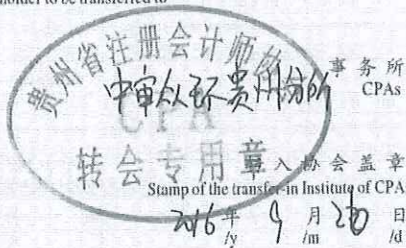 holder to be transferred to
贵州省注册会计师协
中审众环贵州分所
事务所
CPA
CPAs
转会专用章
转入协会盖章
Stamp of the transfer-in Institute of CPA
2016年9月20日
/y /m /d